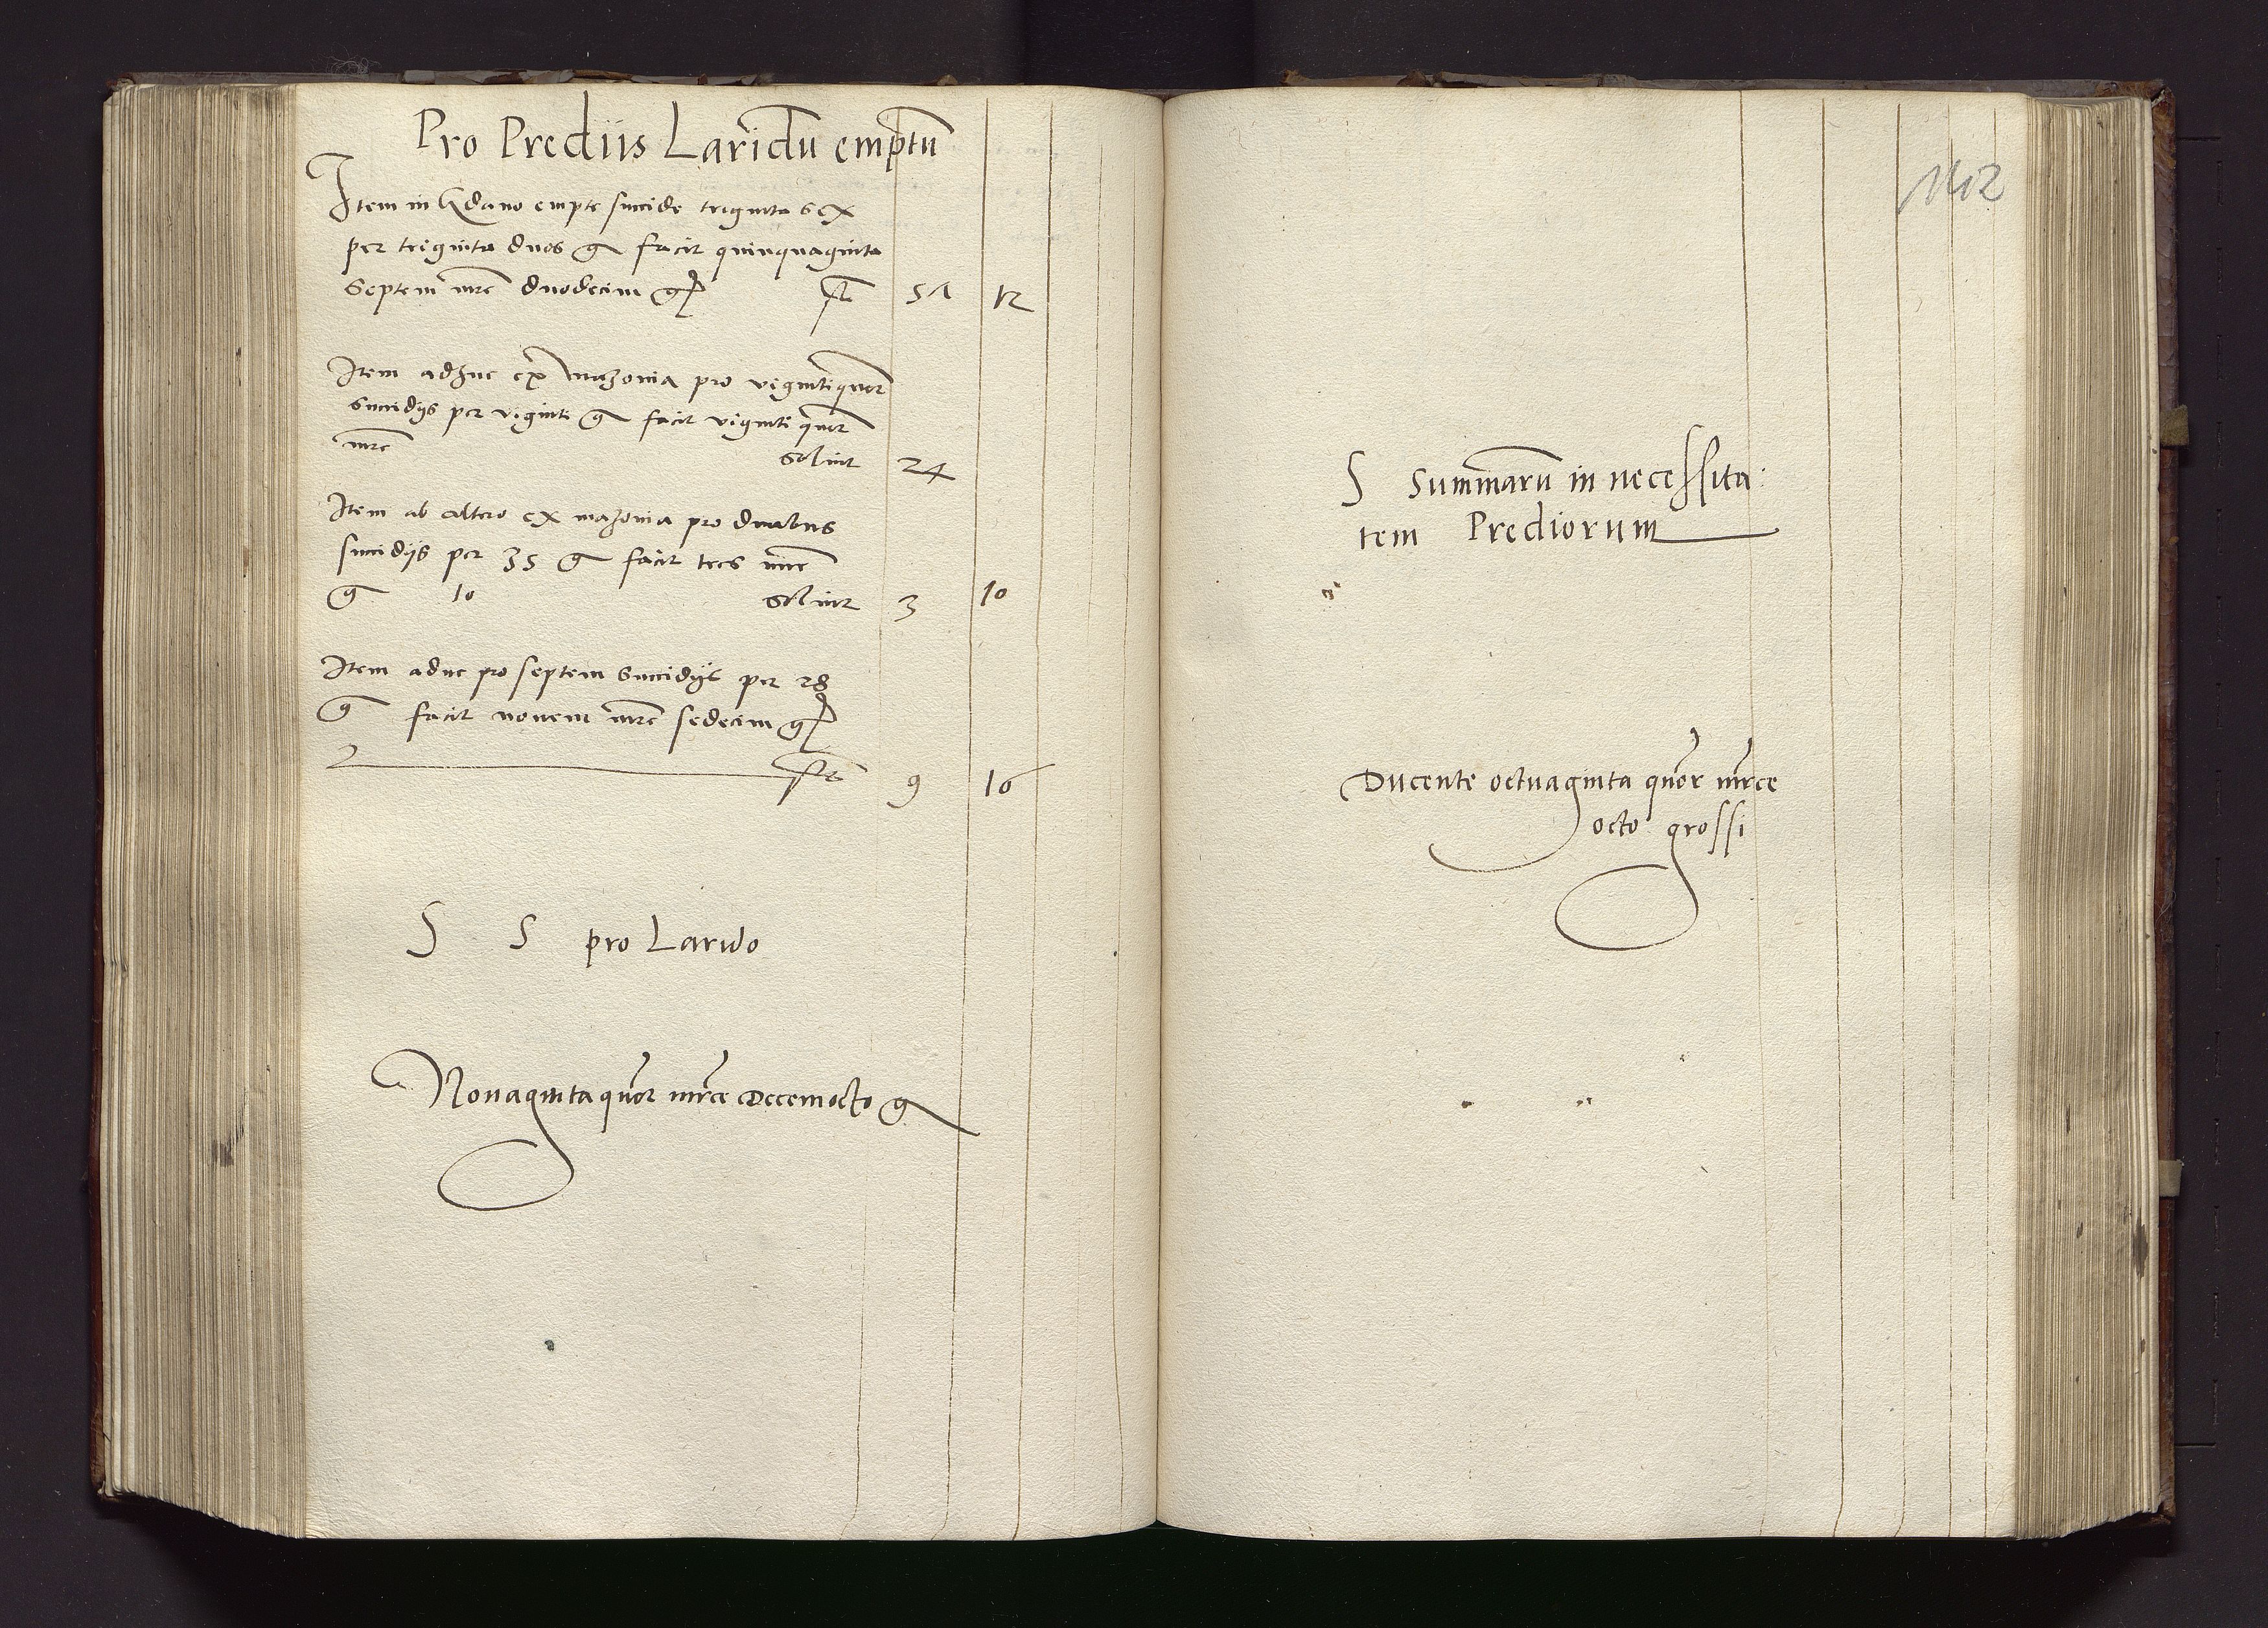 Pro Prediis Laridū emptū
Item in Gdano empte succide triginta sex
per triginta duos g facit quinquaginta
septem mrc duodecim g
ft 57 12
Item adhuc ex mazonia pro vigintiquor
succidijs per viginti g facit viginti quor
mrc solvit 24
Item ab altero ex mazonia pro duabus
succidijs per 35 g facit tres mrc
g 10 solvit 3 10
Item aduc pro septem succidijs per 28
g facit novem mrc sedecim g
ft 9 16
S S pro Larido
Nonaginta quor mrce Decemocto g
142
S Summarū in necessita:
tem Prediorum
Ducente octuaginta quor mrce
octo grossi